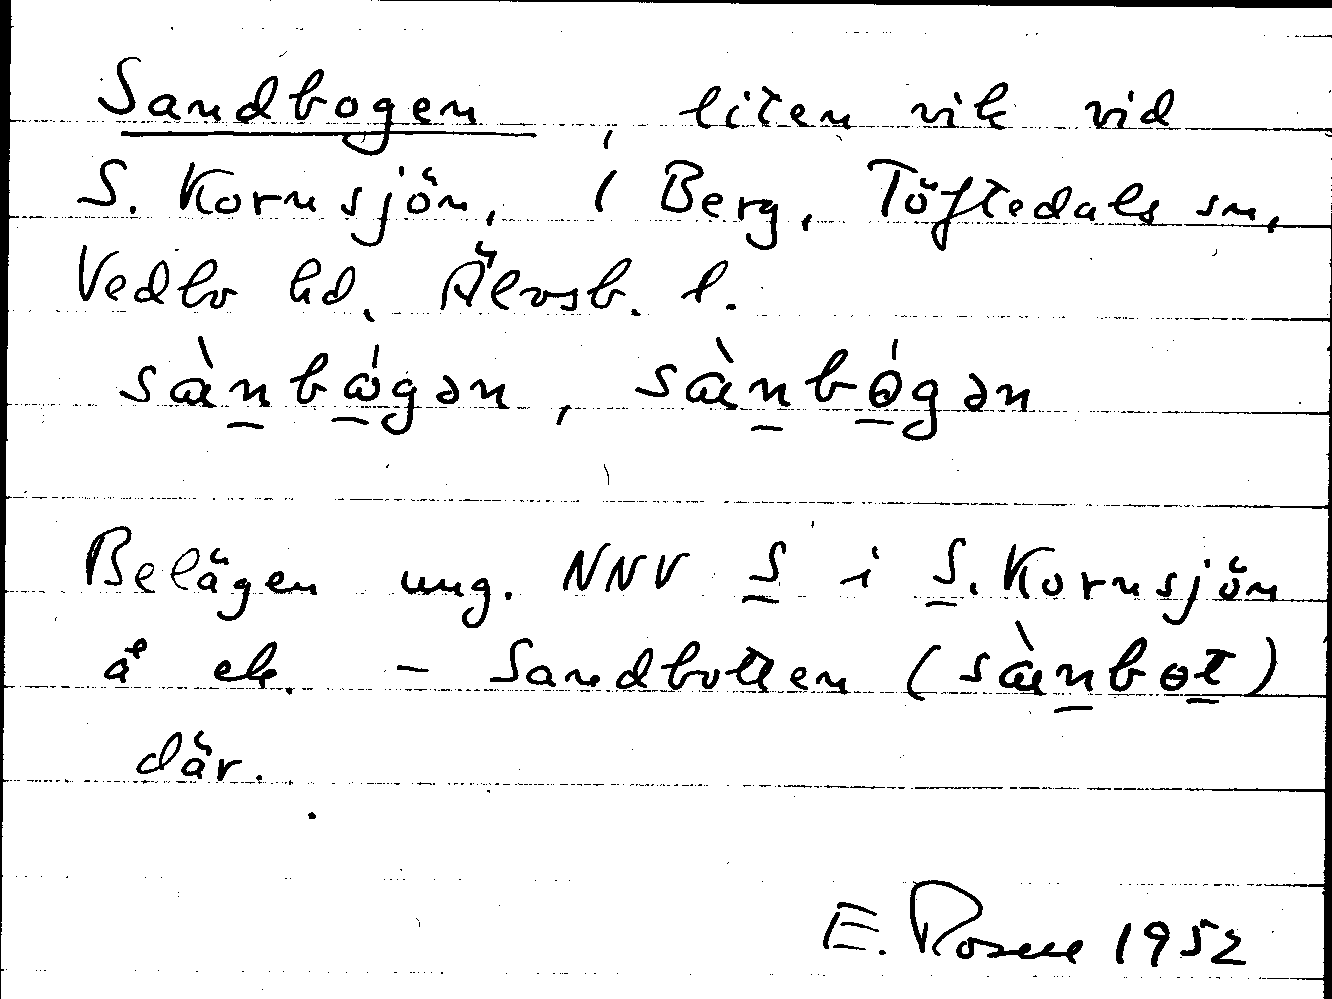 Sandbogen, liten vik vid
S. Kornsjön, 1 Berg, Töftedals sn,
Vedbo hd. Älvsb. l.
sànbǿgən, sànbɵ́gən
Belägen ung. NNV S i S. Kornsjön
å ek. – Sandbotten (sànbɵt)
där.
E. Rosell 1952